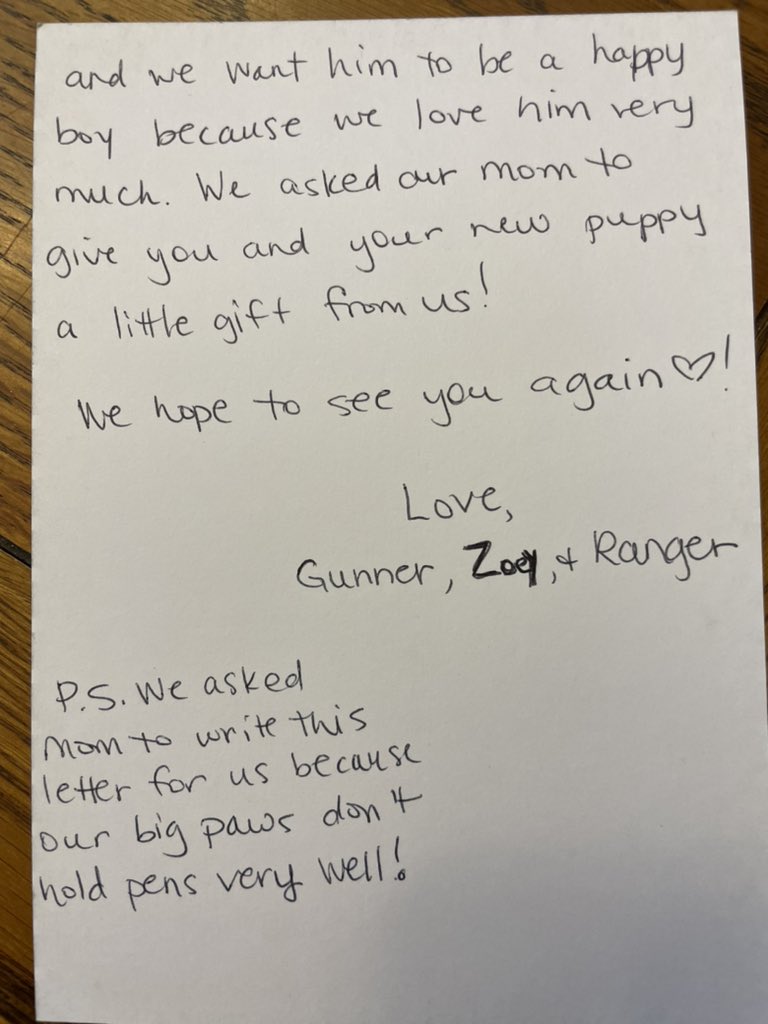 and we want him to be a happy
boy because we love him very
much. We asked our mom to
give you and your new puppy
a little gift from us!
We hope to see you again ♡!
Love,
Gunner, Zoey, + Ranger
P.S. We asked
mom to write this
letter for us because
our big paws don't
hold pens very well!